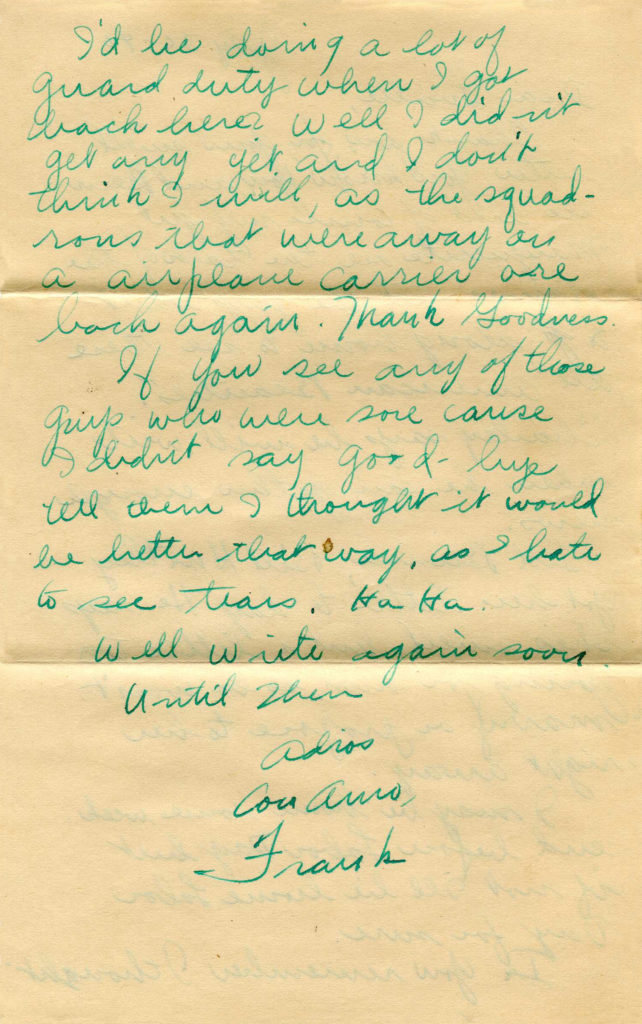 I'd be doing a lot of
guard duty when I got
back here? Well I didn't
get any yet and I don't
think I will, as the squad-
rons that were away on
a airplane carrier are
back again. Thank Goodness.
If you see any of those
guys who were sore cause
I didn't say good-bye
tell them I thought it would
be better that way, as I hate
to see tears. Ha Ha.
Well write again soon.
Until then
Adios
Con Amo,
Frank